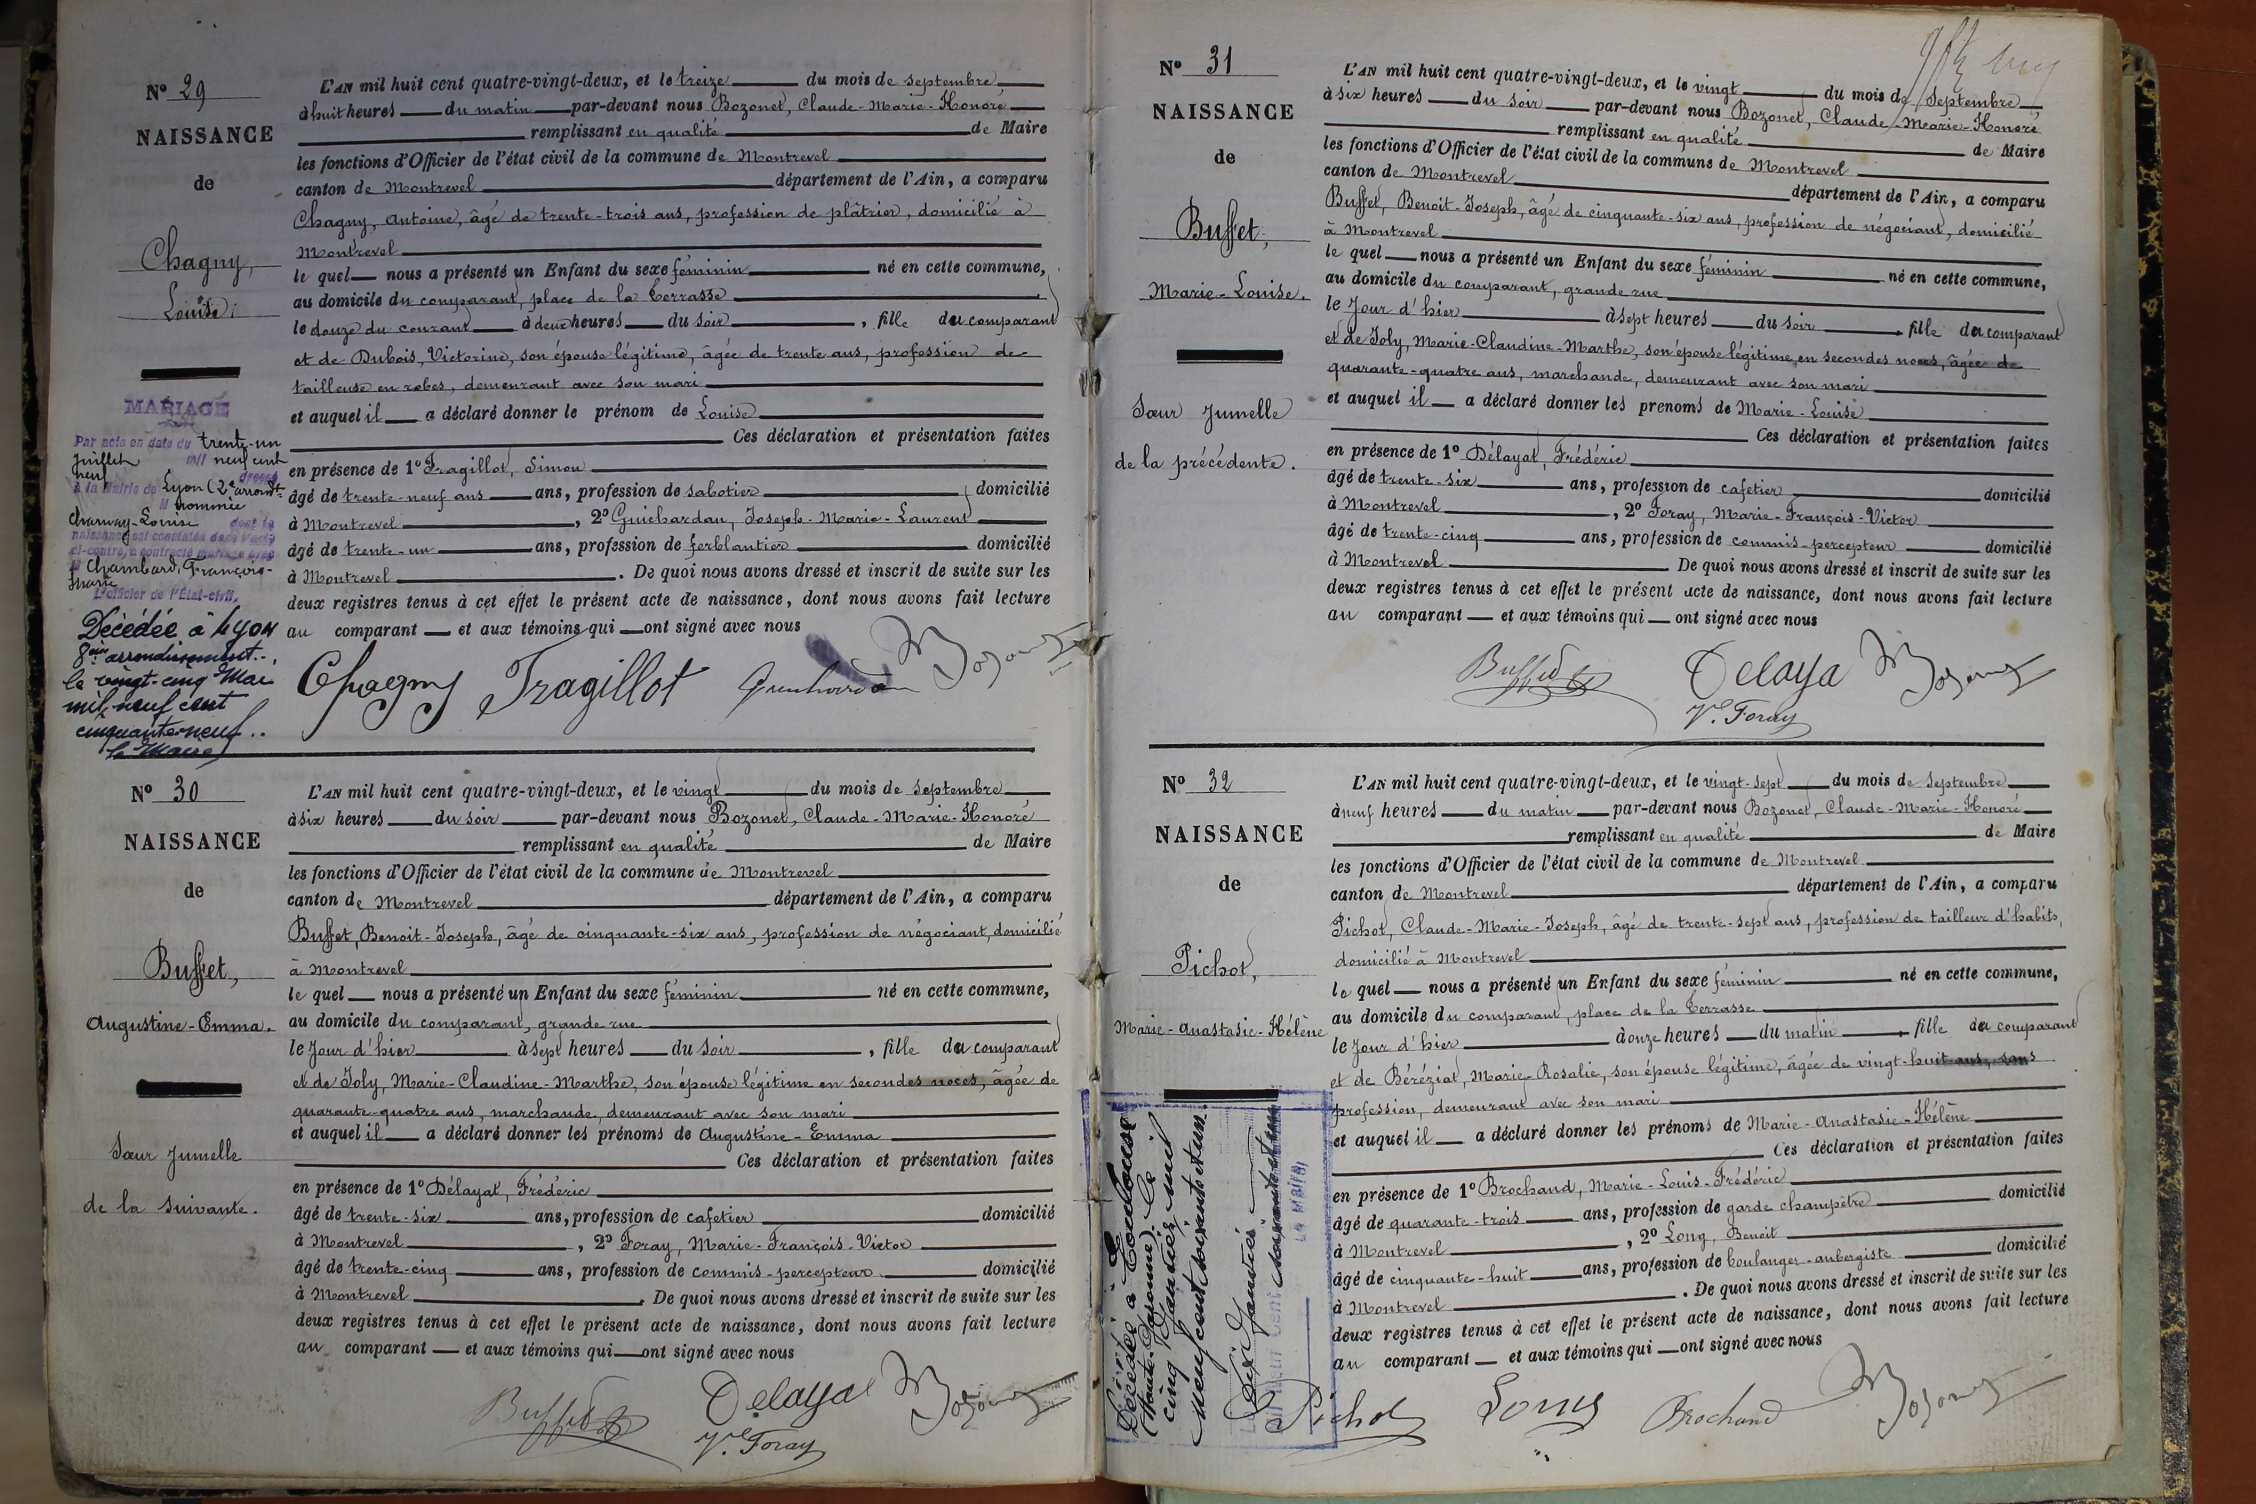 Nº 29
NAISSANCE
de
Chagny,
Louise.
L'AN mil huit cent quatre-vingt-deux, et le treize du mois de septembre
à huit heures du matin par-devant nous Bozonet, Claude-Marie-Honoré
remplissant en qualité de Maire
les fonctions d'Officier de l'état civil de la commune de Montrevel
canton de Montrevel département de l'Ain, a comparu
Chagny, Antoine, âgé de trente-trois ans, profession de plâtrier, domicilié à
Montrevel
le quel nous a présenté un Enfant du sexe féminin né en cette commune,
au domicile du comparant, place de la Terrasse
le douze du courant à deux heures du soir, fille du comparant
et de Dubois, Victorine, son épouse légitime, âgée de trente ans, profession de
tailleuse en robes, demeurant avec son mari
et auquel il a déclaré donner le prénom de Louise
Ces déclaration et présentation faites
en présence de 1º Fragillot, Simon
âgé de trente-neuf ans ans, profession de sabotier domicilié
à Montrevel, 2º Guichardan, Joseph-Marie-Laurent
âgé de trente-un ans, profession de ferblantier domicilié
à Montrevel. De quoi nous avons dressé et inscrit de suite sur les
deux registres tenus à cet effet le présent acte de naissance, dont nous avons fait lecture
au comparant et aux témoins qui ont signé avec nous
Chagny Fragillot Guichardan Bozonet
MARIAGE
Par acte en date du trente-un
juillet mil neuf cent
neuf dressé
à la Mairie de Lyon (2e arrondt
M nommée
Charnay-Louise dont la
naissance est constatée dans l'acte
ci-contre, a contracté mariage avec
M Chambard, François-
Marie
L'officier de l'État-civil,
Décédée à Lyon
8ème arrondissement.
le vingt-cinq Mai
mil neuf cent
cinquante-neuf..
le Maire
Nº 30
NAISSANCE
de
Buffet,
Augustine-Emma.
Sœur Jumelle
de la suivante.
L'AN mil huit cent quatre-vingt-deux, et le vingt du mois de septembre
à six heures du soir par-devant nous Bozonet, Claude-Marie-Honoré
remplissant en qualité de Maire
les fonctions d'Officier de l'état civil de la commune de Montrevel
canton de Montrevel département de l'Ain, a comparu
Buffet, Benoit-Joseph, âgé de cinquante-six ans, profession de négociant, domicilié
à Montrevel
le quel nous a présenté un Enfant du sexe féminin né en cette commune,
au domicile du comparant, grande rue
le Jour d'hier à sept heures du soir, fille du comparant
et de Joly, Marie-Claudine-Marthe, son épouse légitime en secondes noces, âgée de
quarante-quatre ans, marchande, demeurant avec son mari
et auquel il a déclaré donner les prénoms de Augustine-Emma
Ces déclaration et présentation faites
en présence de 1º Délayat, Frédéric
âgé de trente-six ans, profession de cafetier domicilié
à Montrevel, 2º Foray, Marie-François-Victor
âgé de trente-cinq ans, profession de commis-percepteur domicilié
à Montrevel. De quoi nous avons dressé et inscrit de suite sur les
deux registres tenus à cet effet le présent acte de naissance, dont nous avons fait lecture
au comparant et aux témoins qui ont signé avec nous
Buffet Delayat Bozonet
Vr Foray
Nº 31
NAISSANCE
de
Buffet,
Marie-Louise.
Sœur Jumelle
de la précédente.
L'AN mil huit cent quatre-vingt-deux, et le vingt du mois de Septembre
à six heures du soir par-devant nous Bozonet, Claude-Marie-Honoré
remplissant en qualité de Maire
les fonctions d'Officier de l'état civil de la commune de Montrevel
canton de Montrevel département de l'Ain, a comparu
Buffet, Benoit-Joseph, âgé de cinquante-six ans, profession de négociant, domicilié
à Montrevel
le quel nous a présenté un Enfant du sexe féminin né en cette commune,
au domicile du comparant, grande rue
le Jour d'hier à sept heures du soir, fille du comparant
et de Joly, Marie-Claudine-Marthe, son épouse légitime en secondes noces, âgée de
quarante-quatre ans, marchande, demeurant avec son mari
et auquel il a déclaré donner les prenoms de Marie-Louise
Ces déclaration et présentation faites
en présence de 1º Délayat, Frédéric
âgé de trente-six ans, profession de cafetier domicilié
à Montrevel, 2º Foray, Marie-François-Victor
âgé de trente-cinq ans, profession de commis-percepteur domicilié
à Montrevel De quoi nous avons dressé et inscrit de suite sur les
deux registres tenus à cet effet le présent acte de naissance, dont nous avons fait lecture
au comparant et aux témoins qui ont signé avec nous
Buffet Delaya Bozonet
Vr Foray
Nº 32
NAISSANCE
de
Pichot,
Marie-Anastasie-Hélène
L'AN mil huit cent quatre-vingt-deux, et le vingt-sept du mois de Septembre
à neuf heures du matin par-devant nous Bozonet, Claude-Marie-Honoré
remplissant en qualité de Maire
les fonctions d'Officier de l'état civil de la commune de Montrevel
canton de Montrevel département de l'Ain, a comparu
Pichot, Claude-Marie-Joseph, âgé de trente-sept ans, profession de tailleur d'habits,
domicilié à Montrevel
le quel nous a présenté un Enfant du sexe féminin né en cette commune,
au domicile du comparant, place de la Terrasse
le Jour d'hier à onze heures du matin, fille du comparant
et de Béréziat, Marie-Rosalie, son épouse légitime, âgée de vingt-huit ans, sans
profession, demeurant avec son mari
et auquel il a déclaré donner les prénoms de Marie-Anastasie-Hélène
Ces déclaration et présentation faites
en présence de 1º Brochand, Marie-Louis-Frédéric
âgé de quarante-trois ans, profession de garde champêtre domicilié
à Montrevel, 2º Long, Benoit
âgé de cinquante-huit ans, profession de boulanger-aubergiste domicilié
à Montrevel. De quoi nous avons dressé et inscrit de suite sur les
deux registres tenus à cet effet le présent acte de naissance, dont nous avons fait lecture
au comparant et aux témoins qui ont signé avec nous
Pichot Long Brochand Bozonet
Décédée à Toulouse
(Haute-Garonne) le
cinq Janvier mil
neuf cent soixante et un.
Dix Janvier
mil neuf cent soixante et un
LE MAIRE